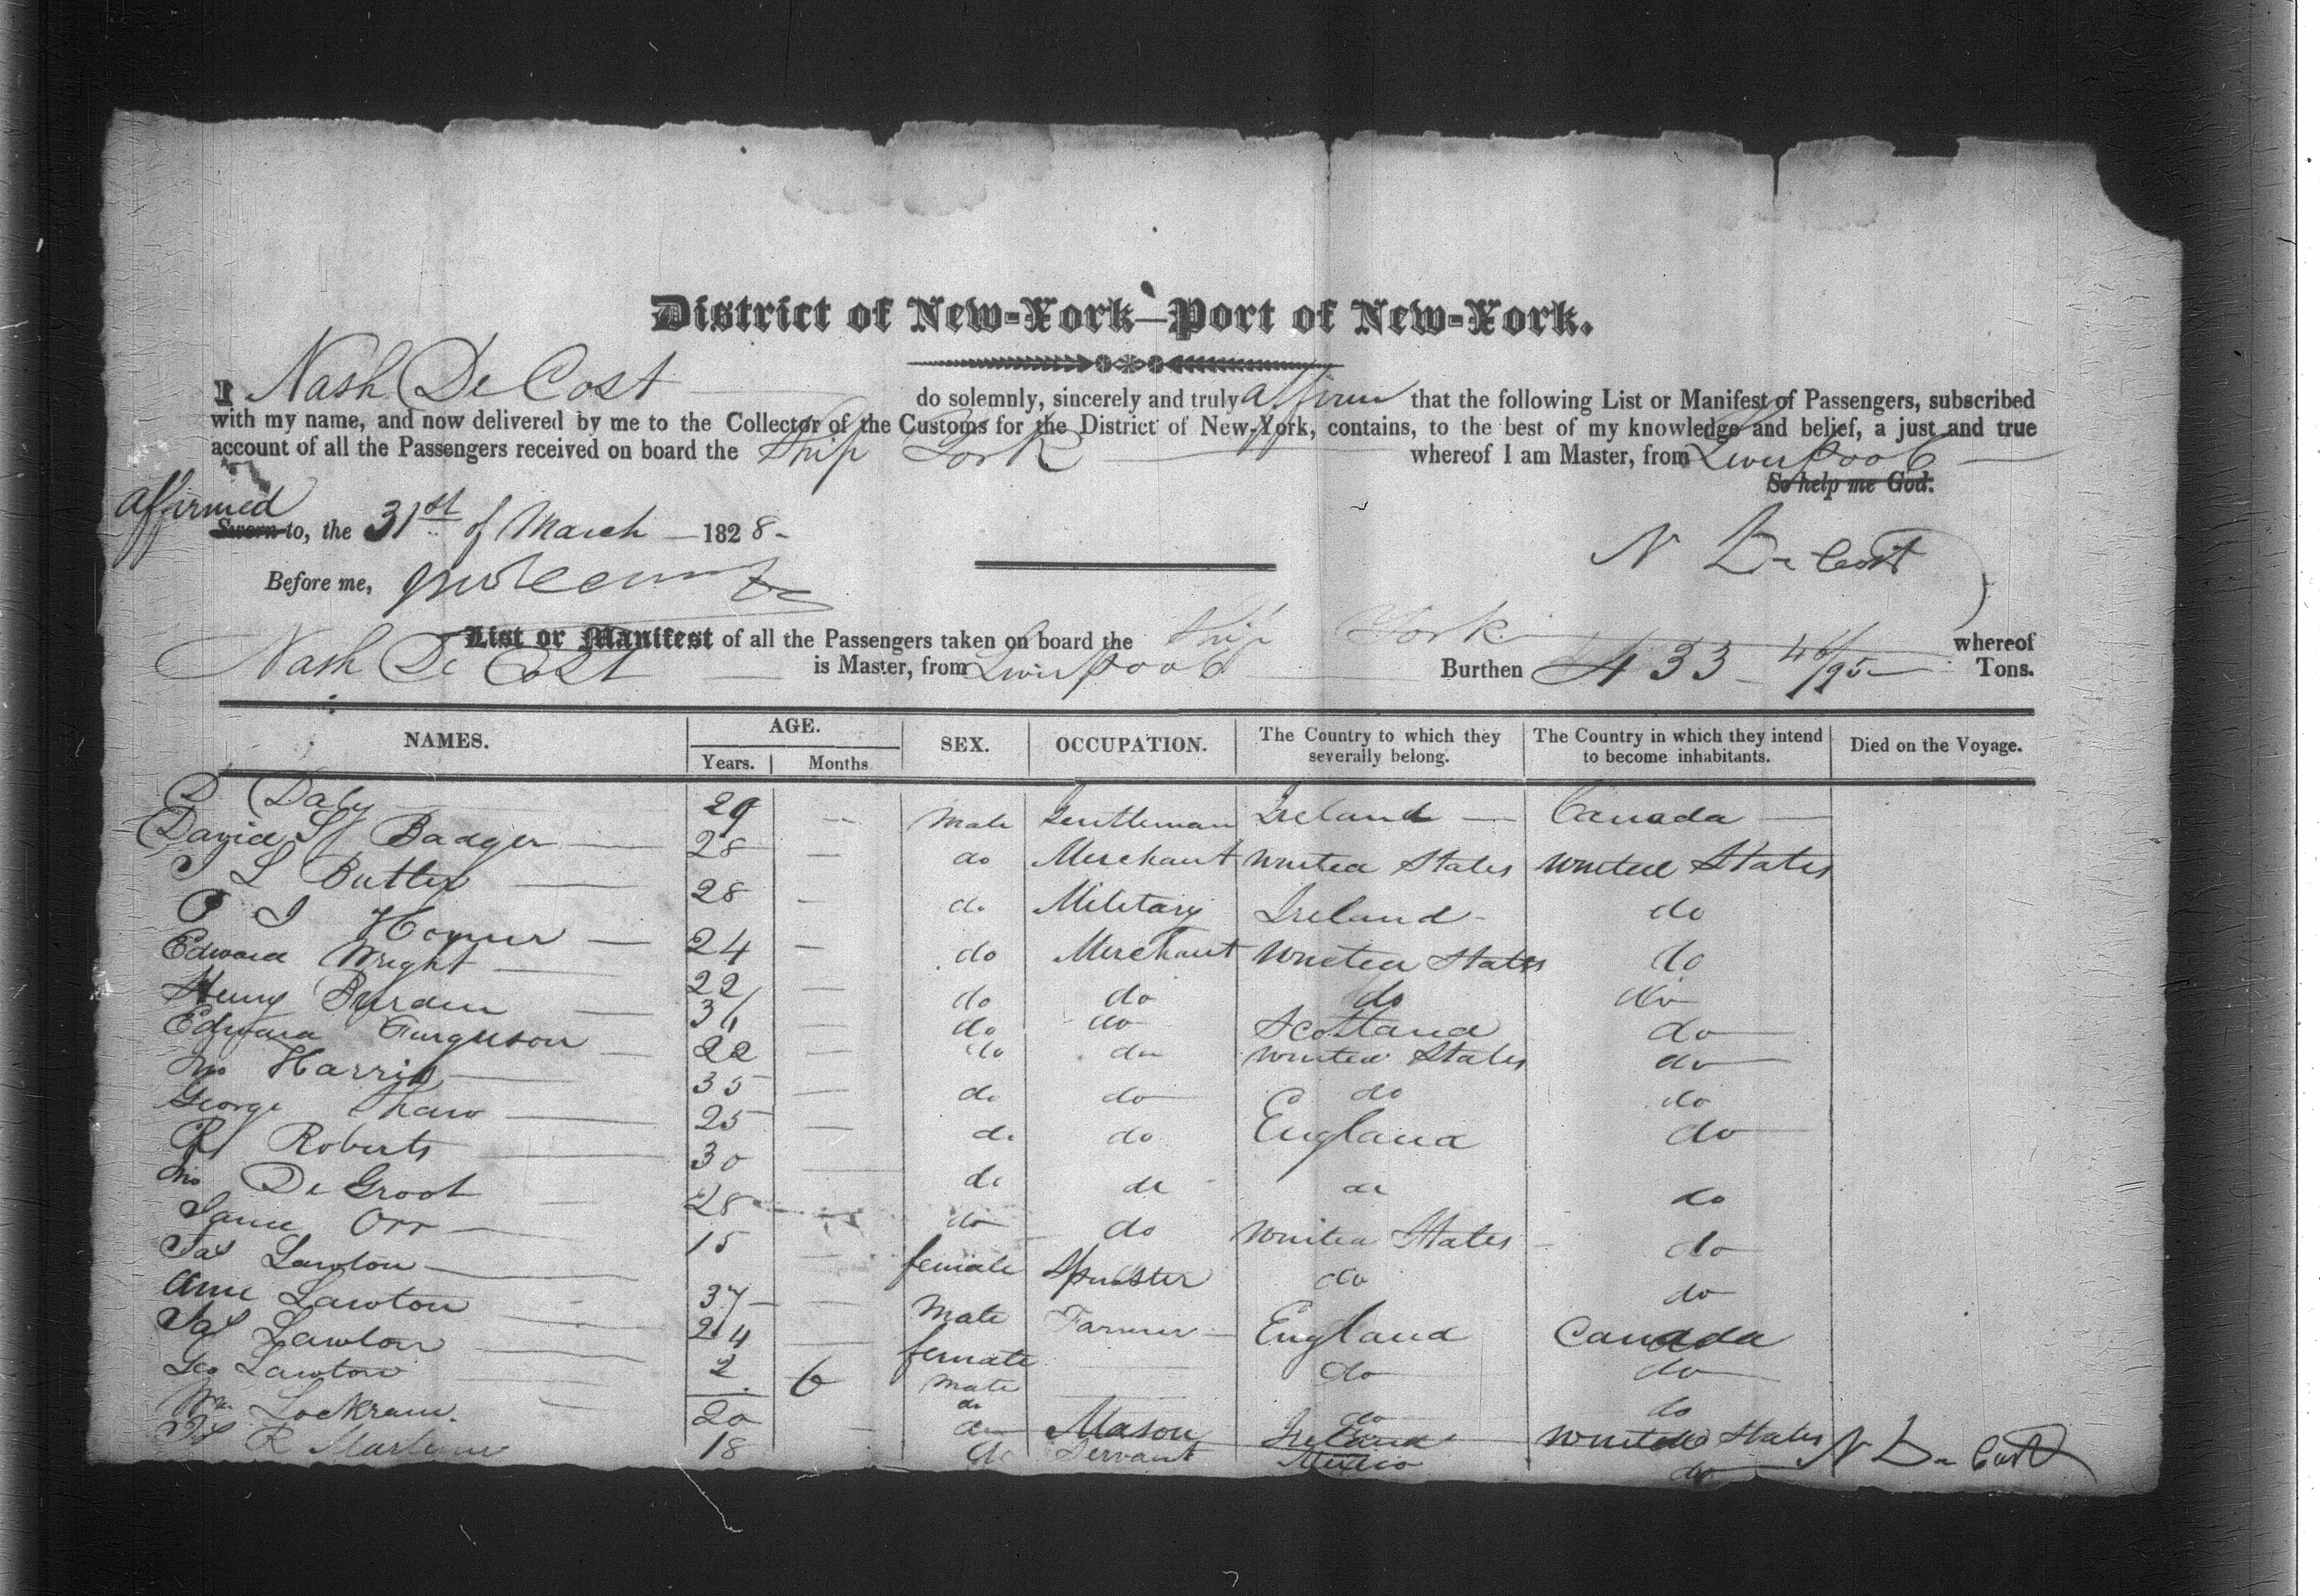 District of New-York—Port of New-York.
I Nash De Cost do solemnly, sincerely and truly affirm that the following List or Manifest of Passengers, subscribed
with my name, and now delivered by me to the Collector of the Customs for the District of New-York, contains, to the best of my knowledge and belief, a just and true
account of all the Passengers received on board the Ship York whereof I am Master, from Liverpool
So help me God.
affirmed
Sworn to, the 31st of March 1828-
N De Cost
Before me,
List or Manifest of all the Passengers taken on board the Ship York whereof
Nash De Cost is Master, from Liverpool Burthen 433 46/95 Tons.
NAMES. AGE. SEX. OCCUPATION. The Country to which they severally belong. The Country in which they intend to become inhabitants. Died on the Voyage.
Years. Months
D Daly 29 — Male Gentleman Ireland — Canada —
David Badger 28 — do Merchant United States United States
L Butler 28 — do Military Ireland - do
Homer 24 — do Merchant United States do
Edward Wright 22 — do do do do
Henry Burden 36 — do do Scotland do
Edward Furguson 22 — do do United States do
Jno Harris 35 — do do do do
George Shaw 25 — do do England do
Roberts 30 — do do do do
Jno De Groot 28 do do United States do
Jane Orr 15 — female Spinster do do
Jas Lawton 37 — Male Farmer England Canada
Ann Lawton 24 — female do do
Jas Lawton 2 6 Male do do
Geo Lawton do
Wm Lockram. 20 — do Mason Ireland United States
R 18 do Servant Mexico do
N De Cost